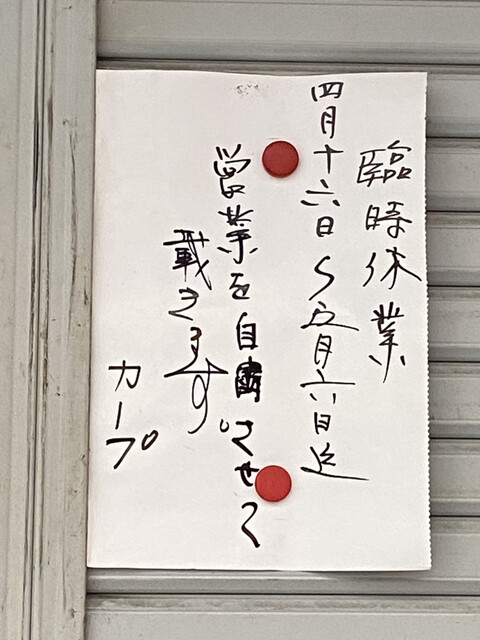 臨時休業
四月十六日〜五月六日迄
営業を自粛させて
戴きます。
カープ